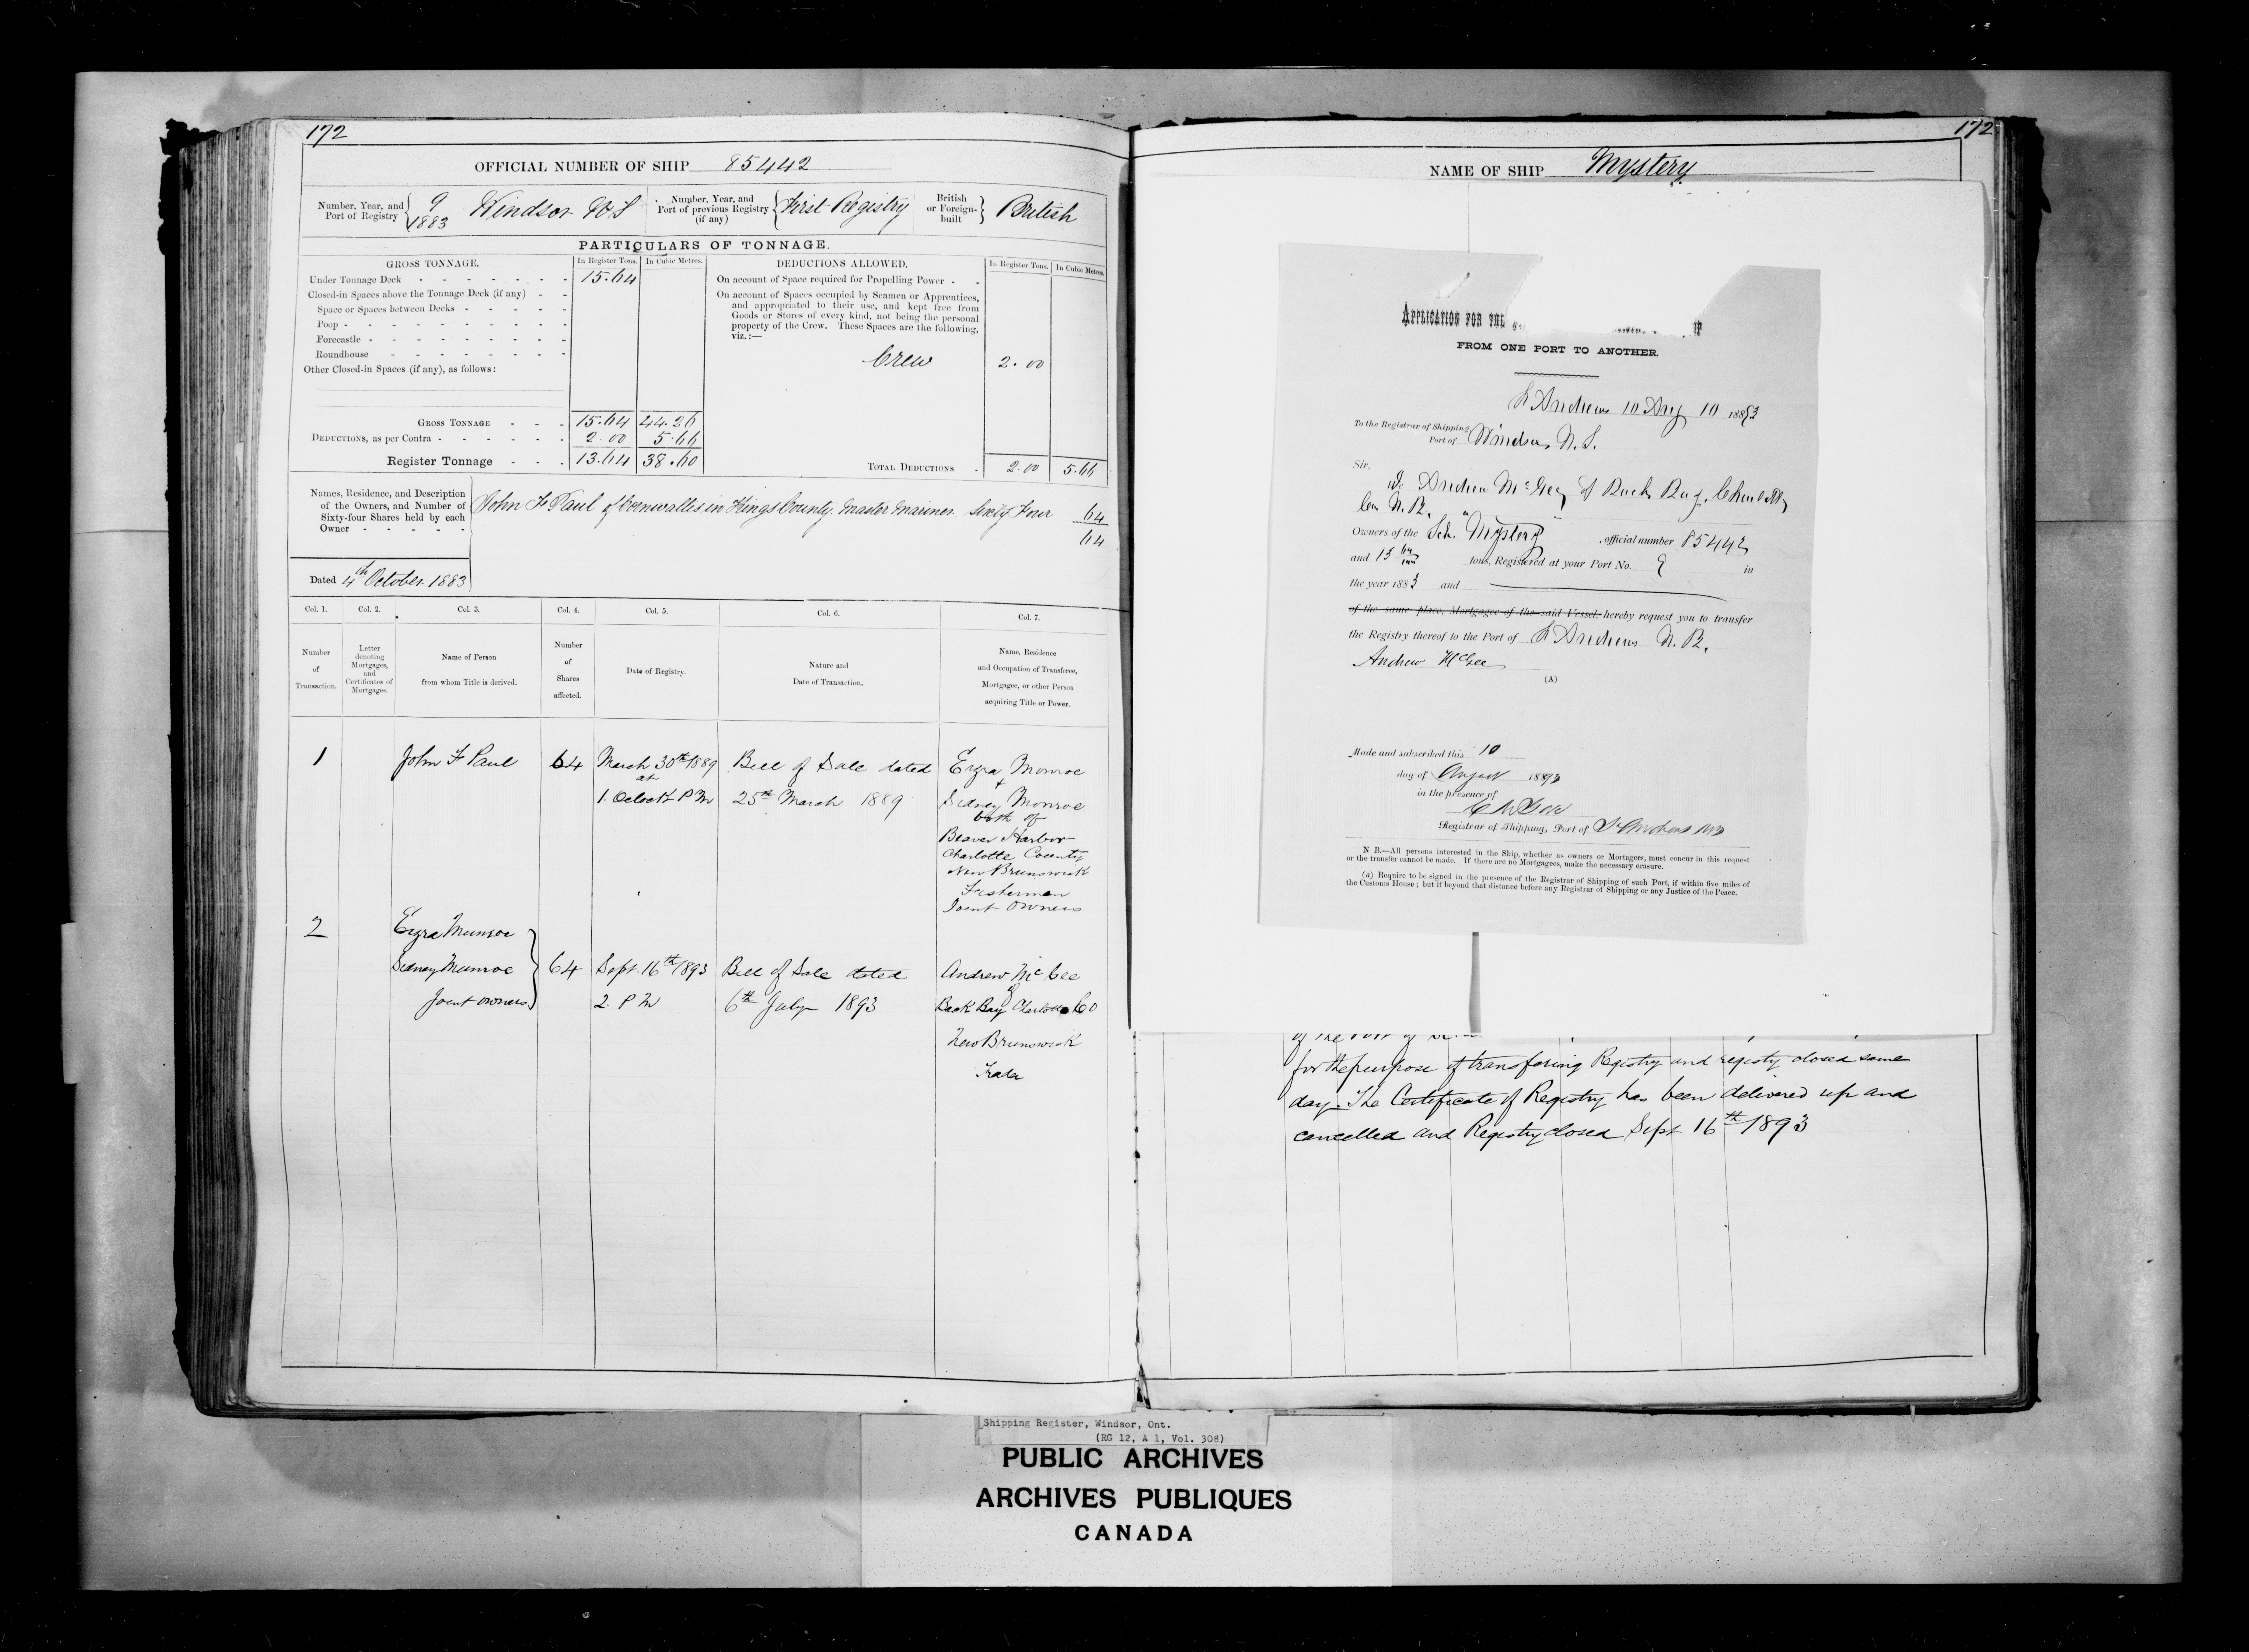 172
OFFICIAL NUMBER OF SHIP 85442
Number, Year, and Port of Registry { 9 1883 Windsor N S
Number, Year, and Port of previous Registry (if any) { First Registry
British or Foreign-built } British
PARTICULARS OF TONNAGE.
GROSS TONNAGE. In Register Tons. In Cubic Metres.
Under Tonnage Deck - - - - - - - 15.64
Closed-in Spaces above the Tonnage Deck (if any) - -
Space or Spaces between Decks - - - - -
Poop - - - - - - - - - -
Forecastle - - - - - - - - -
Roundhouse - - - - - - - -
Other Closed-in Spaces (if any), as follows:
GROSS TONNAGE - - - 15.64 44.26
DEDUCTIONS, as per Contra - - - - - - 2.00 5.66
Register Tonnage - - - 13.64 38.60
DEDUCTIONS ALLOWED. In Register Tons. In Cubic Metres.
On account of Space required for Propelling Power - -
On account of Spaces occupied by Seamen or Apprentices,
and appropriated to their use, and kept free from
Goods or Stores of every kind, not being the personal
property of the Crew. These Spaces are the following,
viz.:—
Crew 2.00
TOTAL DEDUCTIONS - 2.00 5.66
Names, Residence, and Description
of the Owners, and Number of
Sixty-four Shares held by each
Owner - - - - -
John F Paul of Cornwallis in Kings County Master Mariner Sixty Four 64
64
Dated 4th October 1883
Col. 1. Col. 2. Col. 3. Col. 4. Col. 5. Col. 6. Col. 7.
Number of Transaction.
Letter denoting Mortgages, and Certificates of Mortgages.
Name of Person from whom Title is derived.
Number of Shares affected.
Date of Registry.
Nature and Date of Transaction.
Name, Residence and Occupation of Transferee, Mortgagee, or other Person acquiring Title or Power.
1 John F Paul 64 March 30th 1889 Bill of Sale dated Ezra Monroe
at +
1. Oclock P M 25th March 1889 Sidney Monroe
both of
Beaver Harbor
Charlotte County
New Brunswick
Fisherman
Joint owners
2 Ezra Munroe
Sidney Munroe } 64 Sept. 16th 1893 Bill of Sale dated Andrew McGee
of
Joint owners 2. P M 6th July 1893 Back Bay Charlotte Co
New Brunswick
Trader
172
NAME OF SHIP Mystery
APPLICATION FOR THE
FROM ONE PORT TO ANOTHER.
St Andrews 10 Aug 10 1893
To the Registrar of Shipping
Port of Windsor N. S.
Sir,
We Andrew McGee of Back Bay, Charlotte
Co. N. B.
Owners of the Sch. "Mystery" , official number 85442
and 15 64/100 tons, Registered at your Port No. 9 in
the year 1883 and
of the same place, Mortgagee of the said Vessel, hereby request you to transfer
the Registry thereof to the Port of St Andrews N. B.
Andrew McGee
(A)
Made and subscribed this 10
day of August 1893
in the presence of
Registrar of Shipping, Port of St Andrews NB
N B.—All persons interested in the Ship, whether as owners or Mortagees, must concur in this request
or the transfer cannot be made. If there are no Mortgagees, make the necessary erasure.
(a) Require to be signed in the presence of the Registrar of Shipping of such Port, if within five miles of
the Customs House; but if beyond that distance before any Registrar of Shipping or any Justice of the Peace.
of the Port of
for the purpose of transfering Registry and registy closed same
day. The Certificate of Registry has been delivered up and
cancelled and Registry closed Sept 16th 1893
Shipping Register, Windsor, Ont.
(RG 12, A 1, Vol. 308)
PUBLIC ARCHIVES
ARCHIVES PUBLIQUES
CANADA